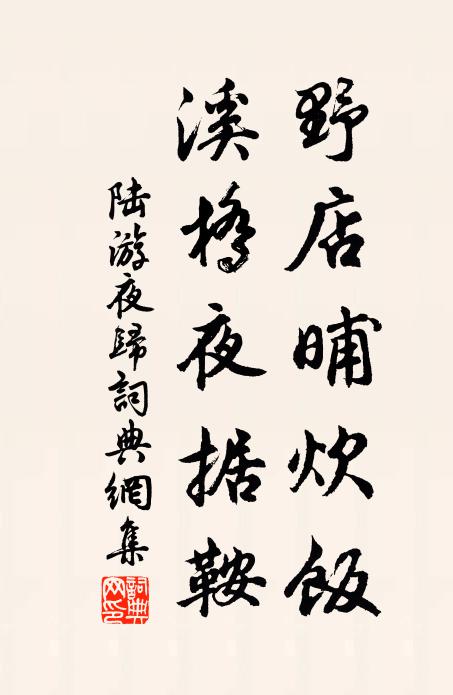 野店晡炊飯
溪橋夜据鞍
陆游夜歸詞典網集
詞典网印